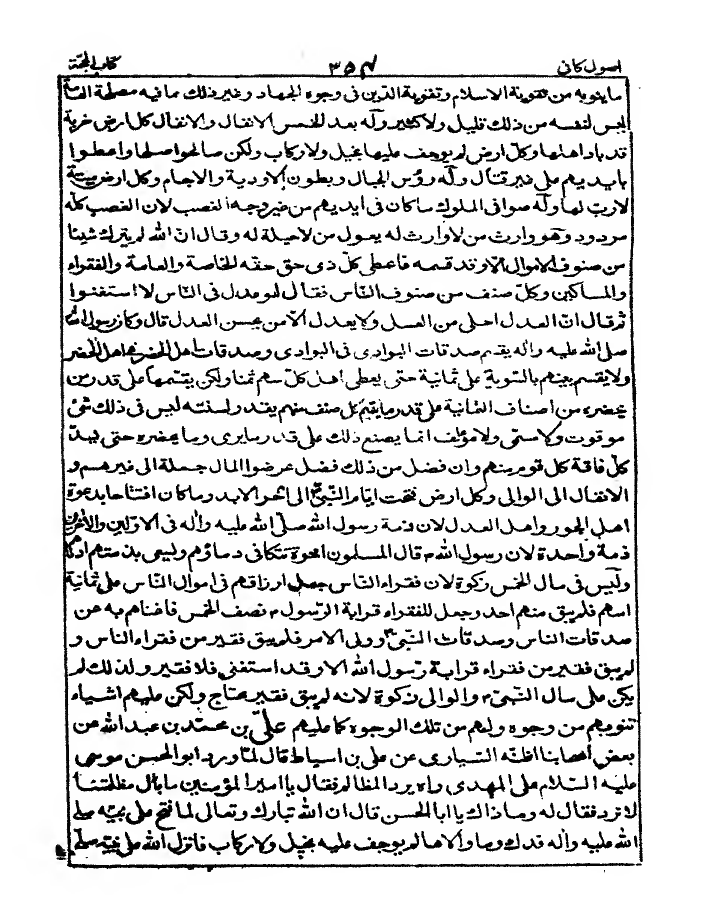 اصول كافى ٣٥٤ كتاب الحجّة
ما ينوبه من تقوية الاسلام وتقوية الدين فى وجوه الجهاد وغير ذلك مما فيه مصلحة العامّة
ليس لنفسه من ذلك قليل ولا كثير وله بعد الخمس الانفال والانفال كل ارض خربة
قد باد اهلها وكلّ ارض لم يوجف عليها بخيل ولا ركاب ولكن صالحوا صلحا واعطوا
بايديهم على غير قتال وله رؤس الجبال وبطون الاودية والاجام وكل ارض ميتة
لا ربّ لها وله صوافى الملوك ما كان فى ايديهم من غير وجه الغصب لان الغصب كلّه
مردود وهو وارث من لا وارث له يعول من لا حيلة له وقال انّ الله لم يترك شيئا
من صنوف الاموال الا وقد قسمه فاعطى كلّ ذى حق حقه الخاصة والعامة والفقراء
والمساكين وكلّ صنف من صنوف النّاس فقال لو عدل فى النّاس لاستغنوا
ثم قال انّ العدل احلى من العسل ولا يعدل الّا من يحسن العدل قال وكان رسول الله
صلى الله عليه واله يقسم صدقات البوادى فى البوادى وصدقات اهل الحضر فى اهل الحضر
ولا يقسم بينهم بالسّوية على ثمانية حتى يعطى اهل كلّ سهم ثمنا ولكن يقسمها على قدر من
يحضره من اصناف الثمانية على قدر ما يقيم كل صنف منهم يقدر لسنته ليس فى ذلك شئ
موقوت ولا مسمّى ولا مؤلف انما يصنع ذلك على قدر ما يرى وما يحضره حتى يسدّ
كلّ فاقة كل قوم منهم وان فضل من ذلك فضل عرضوا المال جملة الى غيرهم و
الانفال الى الوالى وكل ارض فتحت ايّام النّبىّ الى اخر الابد وما كان افتتاحا بدعوة
اهل الجور واهل العدل لان ذمة رسول الله صلّى الله عليه واله فى الاوّلين والآخرين
ذمة واحدة لان رسول الله ص قال المسلمون اخوة تتكافى دماؤهم ويسعى بذمتهم ادناهم
وليس فى مال الخمس زكوة لان فقراء الناس جعل ارزاقهم فى اموال النّاس على ثمانية
اسهم فلم يبق منهم احد وجعل للفقراء قرابة الرّسول ص نصف الخمس فاغناهم به عن
صدقات الناس وصدقات النّبىّ ص وولى الامر فلم يبق فقير من فقراء الناس و
لم يبق فقير من فقراء قرابة رسول الله الا وقد استغنى فلا فقير ولذلك لم
يكن على مال النّبىّ ص والوالى زكوة لانه لم يبق فقير محتاج ولكن عليهم اشياء
تنوبهم من وجوه ولهم من تلك الوجوه كما عليهم علىّ بن محمّد بن عبدالله عن
بعض أصحابنا اظنّه السّيارى عن على بن اسباط قال لمّا ورد ابوالحسن موسى
عليه السّلام على المهدى راه يرد المظالم فقال يا امير المؤمنين ما بال مظلمتنا
لا ترد فقال له وما ذاك يا ابا الحسن قال ان الله تبارك وتعالى لما فتح على نبيّه صلى
الله عليه واله فدك وما والاها لم يوجف عليه بخيل ولا ركاب فانزل الله على نبيّه صلّى